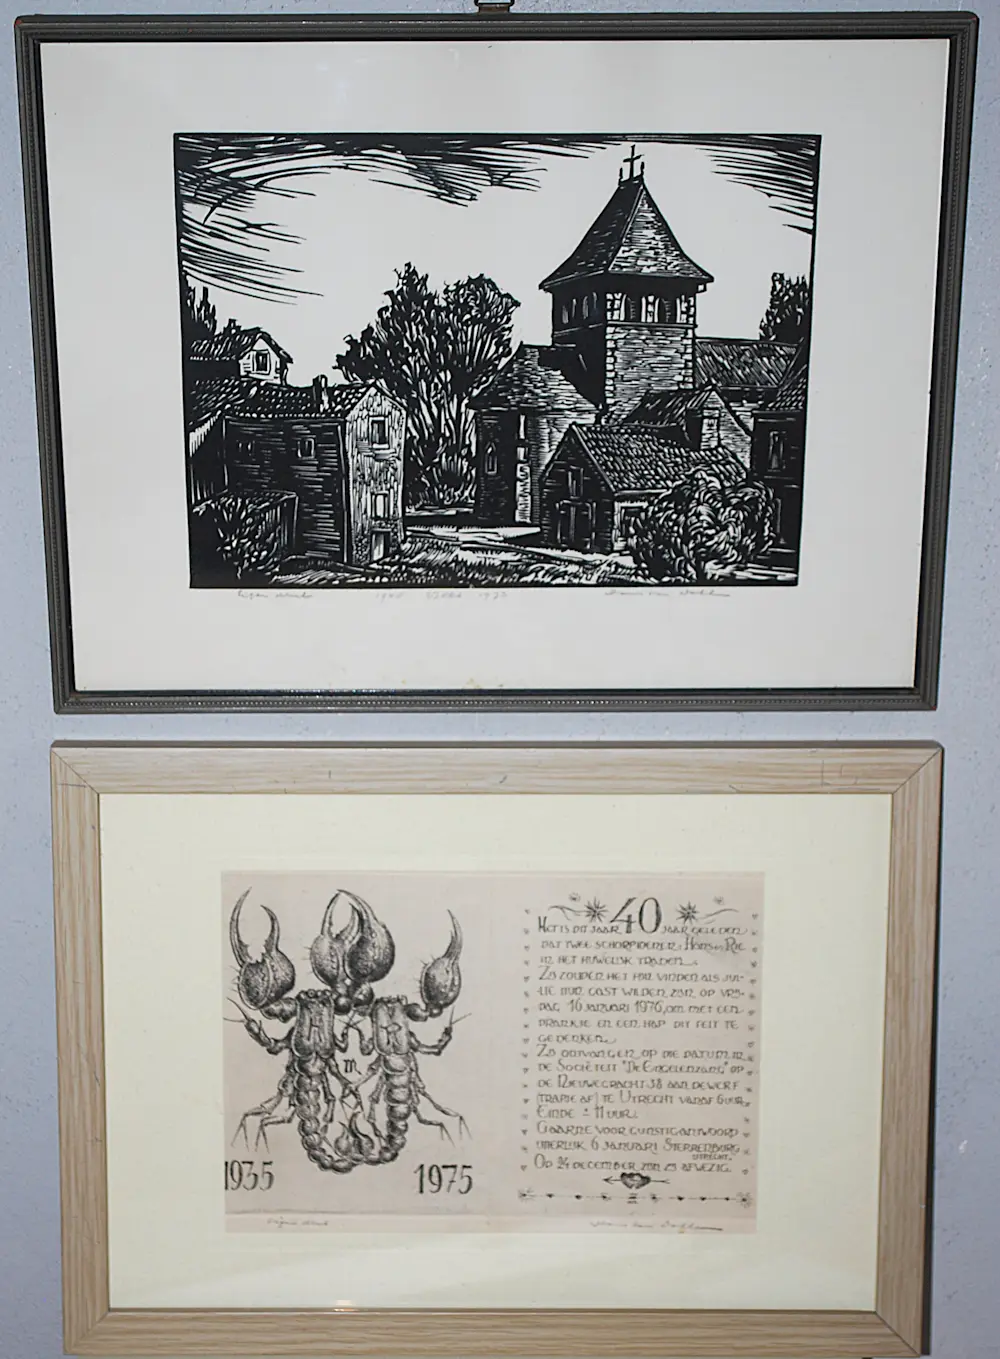 Eigen druk
Hans van Dokkum
H
R
♏
1935
1975
40
Het is dit jaar jaar geleden
dat twee schorpioenen: Hans en Rie
in het huwelijk traden.
Zo zouden het fijn vinden als jul-
lie hun gast wilden zijn op vrij-
dag 16 januari 1976, om met een
drankje en een hap dit feit te
gedenken.
Zo ontvangen op die datum in
de Sociëteit "De Engelenzang" op
de Nieuwegracht 38 aan de werf
(trapje af) te Utrecht vanaf 6 uur.
Einde ± 11 uur.
Gaarne voor gunstig antwoord
uiterlijk 6 januari Sterrenburg
Utrecht.
Op 24 december zijn zij afwezig.
Eigen druk
Hans van Dokkum